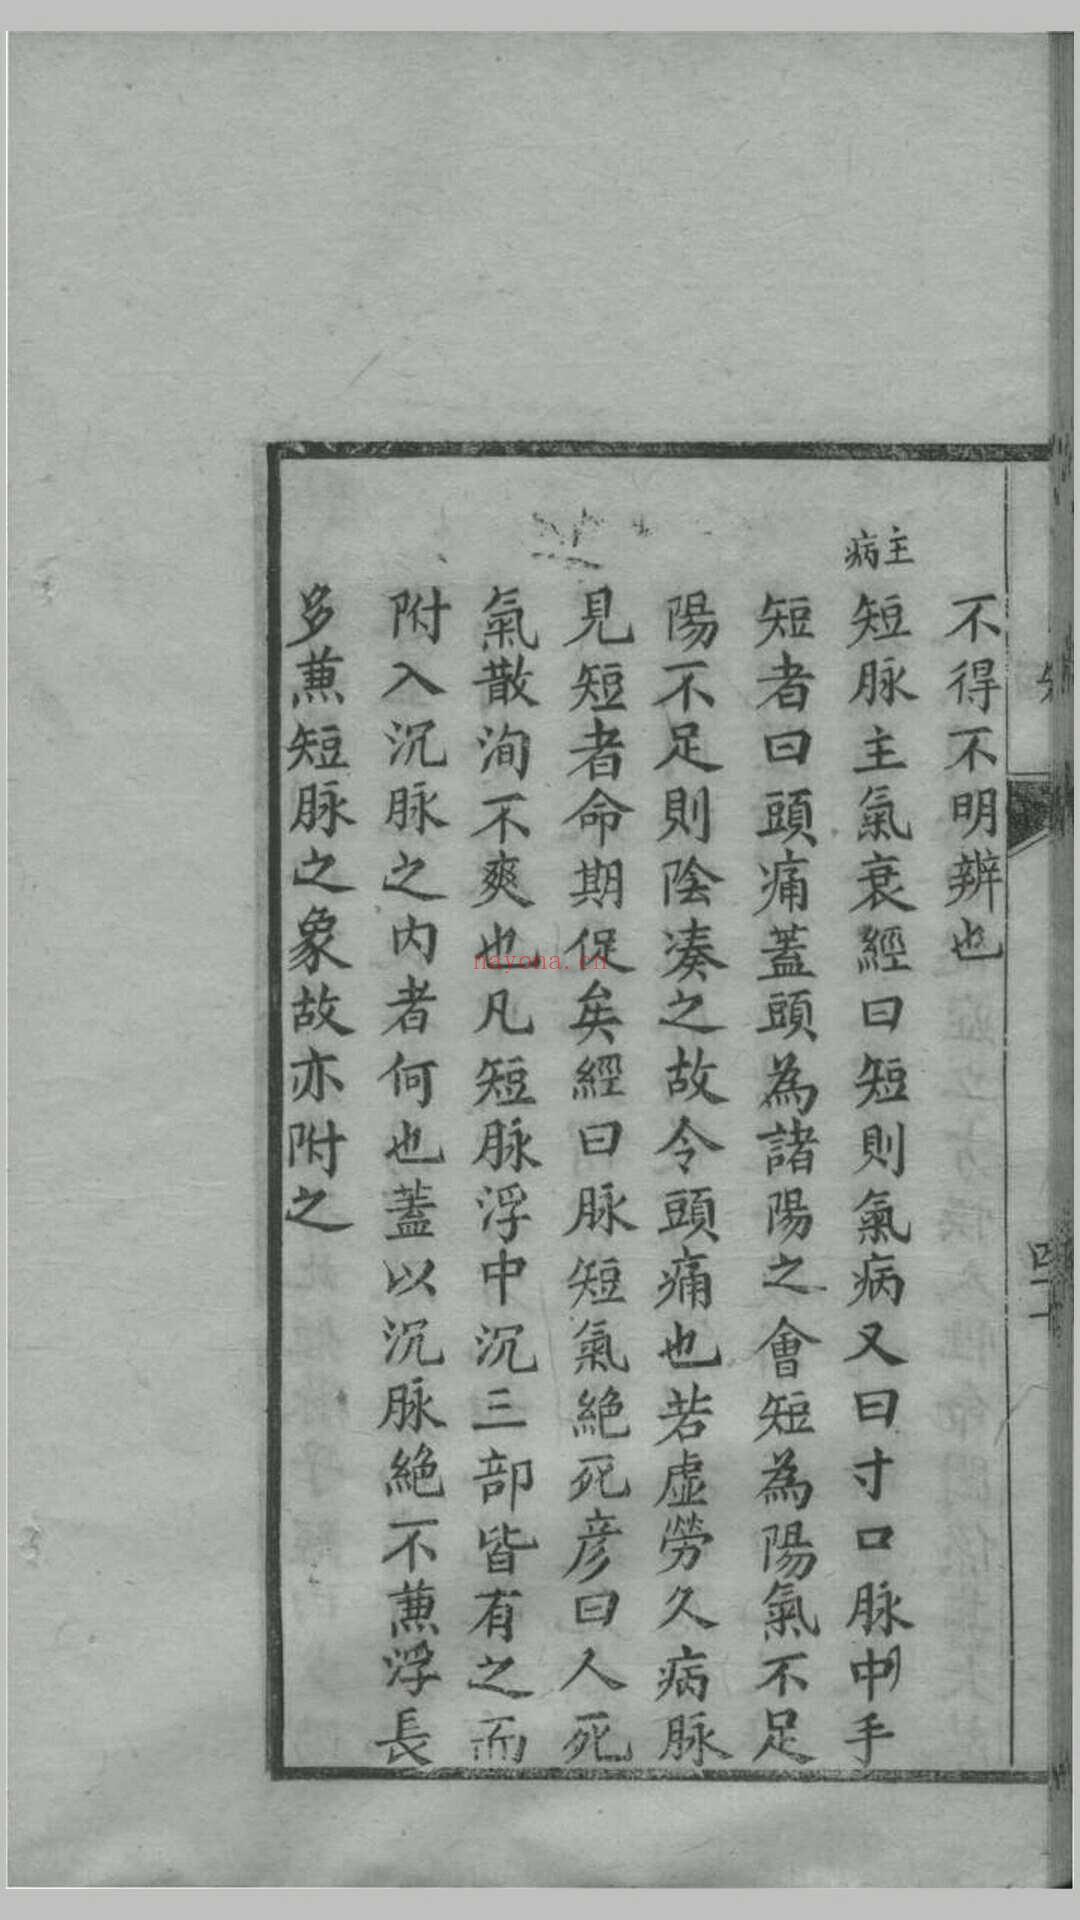 不得不明辨也
主病
短脉主氣衰經曰短則氣病又曰寸口脉中手
短者曰頭痛蓋頭為諸陽之會短為陽氣不足
陽不足則陰凑之故令頭痛也若虛勞久病脉
見短者命期促矣經曰脉短氣絶死彦曰人死
氣散洵不爽也凡短脉浮中沉三部皆有之而
附入沉脉之内者何也蓋以沉脉絶不蕪浮長
多蕪短脉之象故亦附之
nayona.cn